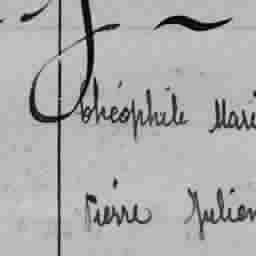 théophile Mari
Pierre Julien